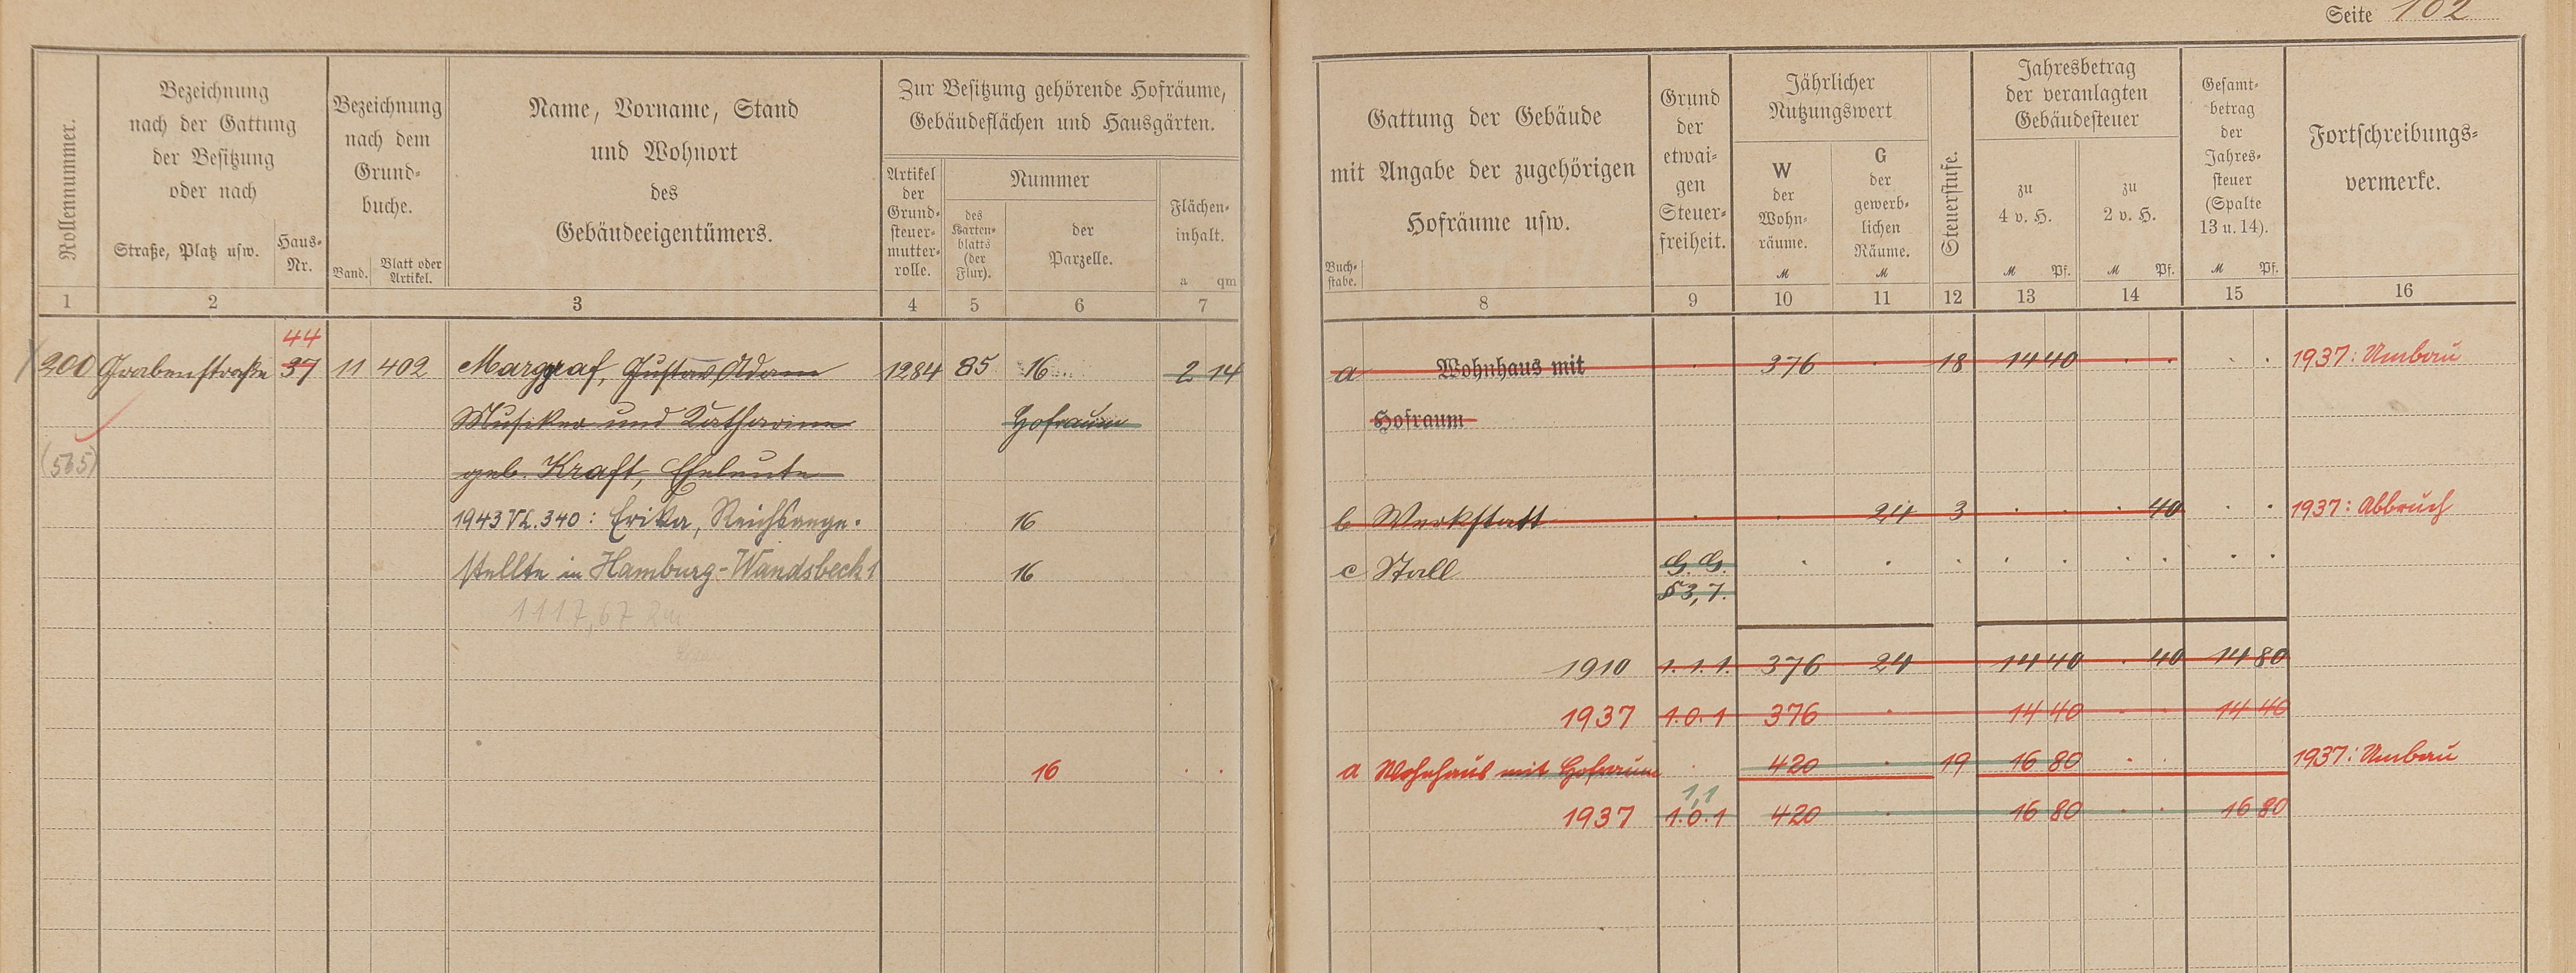 Seite 102
Rollennummer.
Bezeichnung
nach der Gattung
der Besitzung
oder nach
Straße, Platz usw.
Haus-
Nr.
Bezeichnung
nach dem
Grund-
buche.
Band.
Blatt oder
Artikel.
Name, Vorname, Stand
und Wohnort
des
Gebäudeeigentümers.
Zur Besitzung gehörende Hofräume,
Gebäudeflächen und Hausgärten.
Artikel
der
Grund-
steuer-
mutter-
rolle.
Nummer
des
Karten-
blatts
(der
Flur).
der
Parzelle.
Flächen-
inhalt.
a qm
Gattung der Gebäude
mit Angabe der zugehörigen
Hofräume usw.
Buch-
stabe.
Grund
der
etwai-
gen
Steuer-
freiheit.
Jährlicher
Nutzungswert
W
der
Wohn-
räume.
M
G
der
gewerb-
lichen
Räume.
M
Steuerstufe.
Jahresbetrag
der veranlagten
Gebäudesteuer
zu
4 v. H.
M Pf.
zu
2 v. H.
M Pf.
Gesamt-
betrag
der
Jahres-
steuer
(Spalte
13 u. 14).
M Pf.
Fortschreibungs-
vermerke.
1 2 3 4 5 6 7 8 9 10 11 12 13 14 15 16
44
200 Grabenstraße 37 11 402 Margraf, Gustav Adam 1284 85 16 2 14 a Wohnhaus mit 376 18 14 40 1937: Umbau
Musiker und Katharine Hofraum Hofraum
(565) geb. Kraft, Eheleute
1943 VL. 340: Erika, Reichsange- 16 b Werkstatt 24 3 40 1937: Abbruch
stellte in Hamburg-Wandsbeck 1 16 c Stall G. G.
§ 3, 7.
1117,67
1910 1.1.1. 376 24 14 40 40 14 80
1937 1.0.1 376 14 40 14 40
16 a Wohnhaus mit Hofraum 420 19 16 80 1937: Umbau
1,1
1937 1.0.1 420 16 80 16 80